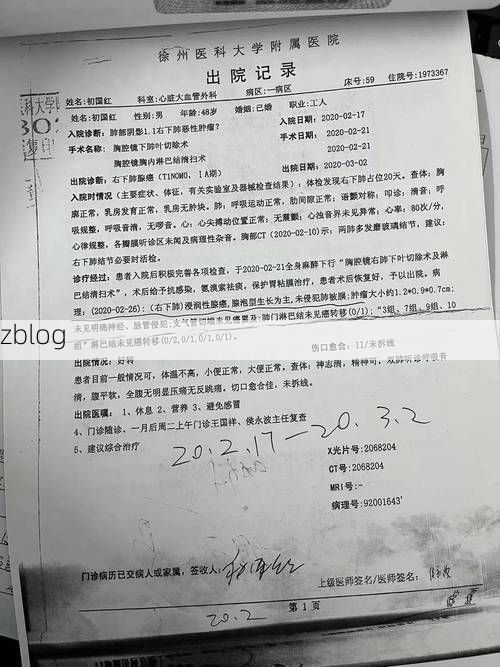 徐州医科大学附属医院
出院记录
姓名:初国红 科室:心脏大血管外科 病区:一病区 床号:59 住院号:1973367
姓名:初国红 性别:男 年龄:48岁 婚姻:已婚 职业:工人
入院诊断:肺部阴影1.1右下肺恶性肿瘤? 入院日期:2020-02-17
手术名称: 胸腔镜下肺叶切除术 手术日期:2020-02-21
胸腔镜胸内淋巴结清扫术 2020-02-21
出院诊断:右下肺腺癌(T1N0M0,ⅠA期) 出院日期:2020-03-02
入院时情况(主要症状、体征,有关实验室及器械检查结果):体检发现右下肺占位20天。查体:胸
廓正常,乳房发育正常,乳房无肿块。肺:呼吸运动正常,肋间隙正常;语颤对称;叩诊:清音;呼
吸规整,呼吸音清,无啰音。心:心尖搏动位置正常;无震颤;心浊音界未见异常;心率:80次/分,
心律规整,各瓣膜听诊区未闻及病理性杂音。胸部CT(2020-02-10)示:两肺多发磨玻璃结节,建议:
右下肺结节必要时活检。
诊疗经过:患者入院后积极完善各项检查,于2020-02-21全身麻醉下行“胸腔镜右肺下叶切除术及淋
巴结清扫术”,术后给予抗感染,氨溴索祛痰,保护胃粘膜治疗,患者术后恢复好,予以出院。病
理:(2020-02-26):(右下肺)浸润性腺癌,腺泡型生长为主,未侵犯肺被膜;肿瘤大小约1.2*0.9*0.7cm;
未见明确神经、脉管侵犯;支气管切端未见癌累及·肺门淋巴结未见癌转移(0/1);“3组、7组、9组、10
组”淋巴结未见癌转移(0/2,0/1,0/1,0/1)。
zblog
出院情况:好转 伤口愈合:II/未拆线
患者目前一般情况可,体温不高,小便正常,大便正常。查体:神志清,精神可,双肺听诊呼吸音
清,腹平软,全腹无明显压痛无反跳痛。切口愈合佳,未拆线。
出院医嘱: 1、休息 2、营养 3、避免感冒
4、门诊随诊、一月后周二上午门诊王国祥、侯永波主任复查
5、建议综合治疗
20.2.17—20.3.2
X光片号:2068204
CT号:2068204
MRI号:-
病理号:92001643'
门诊病历已交病人或家属,签收人:
上级医师签名/医师签名:
第 1 页
20.2